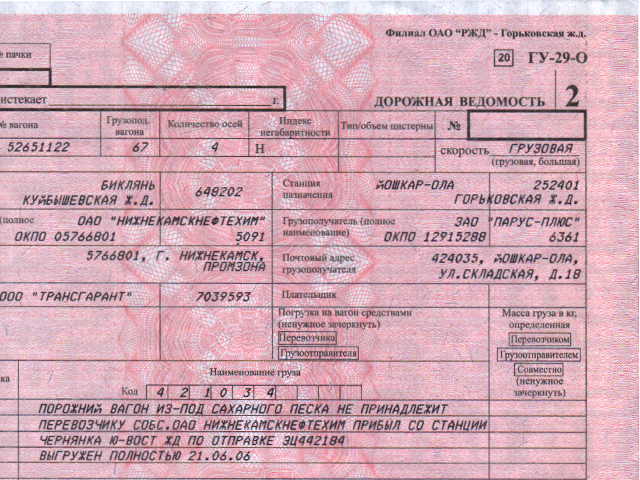 Филиал ОАО "РЖД" - Горьковская ж.д.
№ пачки
20 ГУ-29-О
истекает г.
ДОРОЖНАЯ ВЕДОМОСТЬ 2
№ вагона
Грузопод. вагона
Количество осей
Индекс негабаритности
Тип/объем цистерны
№
52651122 67 4 Н
скорость ГРУЗОВАЯ
(грузовая, большая)
БИКЛЯНЬ
КУЙБЫШЕВСКАЯ Ж.Д.
648202
Станция назначения
ЙОШКАР-ОЛА 252401
ГОРЬКОВСКАЯ Ж.Д.
(полное
ОАО "НИЖНЕКАМСКНЕФТЕХИМ"
ОКПО 05766801 5091
Грузополучатель (полное наименование)
ЗАО "ПАРУС-ПЛЮС"
ОКПО 12915288 6361
5766801, Г. НИЖНЕКАМСК,
ПРОМЗОНА
Почтовый адрес грузополучателя
424035, ЙОШКАР-ОЛА,
УЛ.СКЛАДСКАЯ, Д.18
ООО "ТРАНСГАРАНТ" 7039593
Плательщик
Погрузка на вагон средствами
(ненужное зачеркнуть)
Перевозчика
Грузоотправителя
Масса груза в кг,
определенная
Перевозчиком
Грузоотправителем
Совместно
(ненужное
зачеркнуть)
ка
Наименование груза
Код 4 2 1 0 3 4
ПОРОЖНИЙ ВАГОН ИЗ-ПОД САХАРНОГО ПЕСКА НЕ ПРИНАДЛЕЖИТ
ПЕРЕВОЗЧИКУ СОБС.ОАО НИЖНЕКАМСКНЕФТЕХИМ ПРИБЫЛ СО СТАНЦИИ
ЧЕРНЯНКА Ю-ВОСТ ЖД ПО ОТПРАВКЕ ЭЦ442184
ВЫГРУЖЕН ПОЛНОСТЬЮ 21.06.06